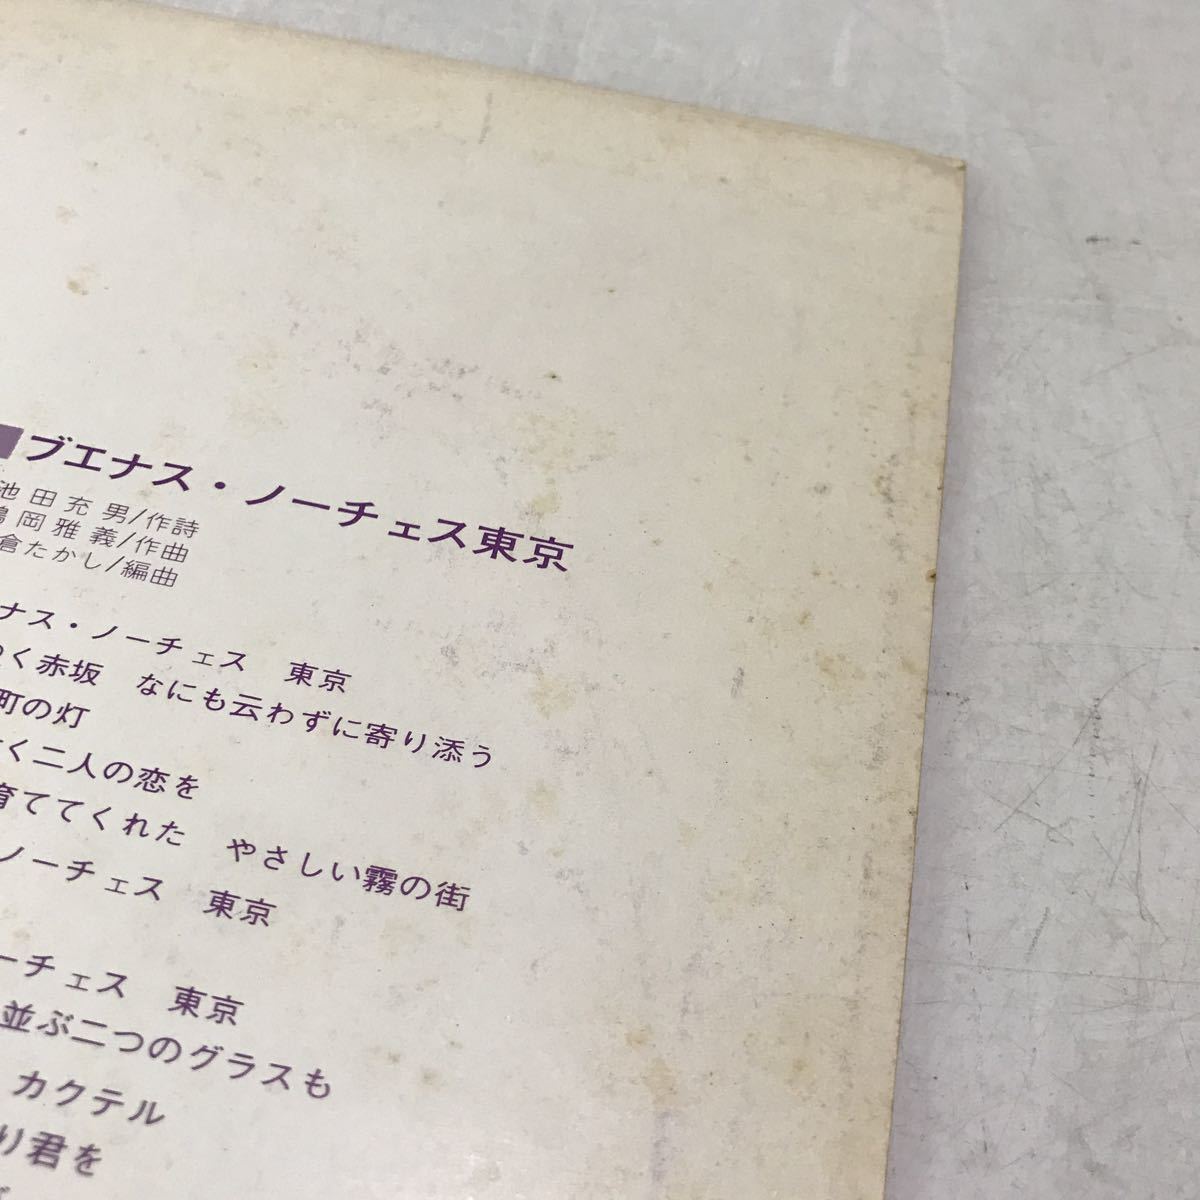 ブエナス・ノーチェス東京
池田充男/作詩
鶴岡雅義/作曲
倉たかし/編曲
ナス・ノーチェス 東京
く赤坂 なにも云わずに寄り添う
町の灯
く二人の恋を
育ててくれた やさしい霧の街
ノーチェス 東京
ーチェス 東京
並ぶ二つのグラスも
カクテル
り君を